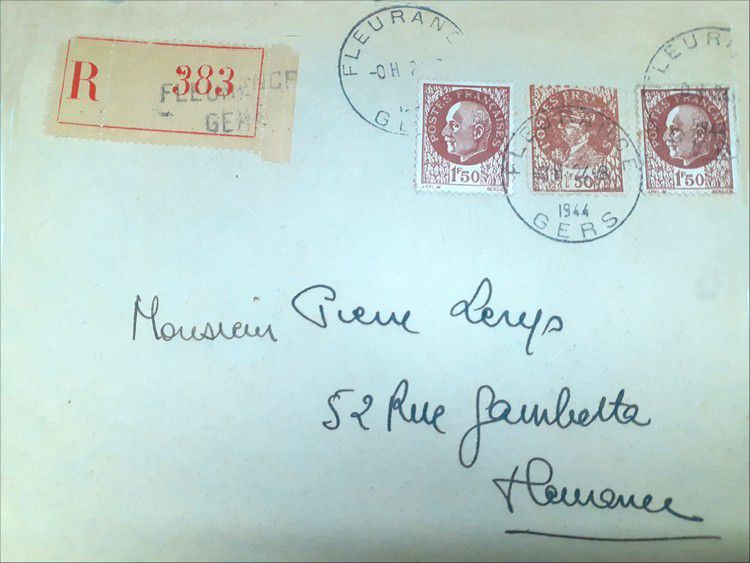 R 383
FLEURANCE
GERS
FLEURANC
-0H 2
GE
POSTES FRANÇAISES
1F50
POSTES FRANÇAISES
1F50
FLEURANCE
1944
GERS
FLEURA
1944
POSTES FRANÇAISES
1F50
Monsieur Pierre Lerys
52 Rue Gambetta
Fleurance